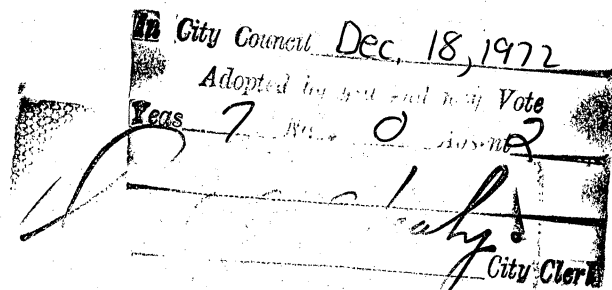 In City Council Dec. 18, 1972
Adopted by yea and nay Vote
Yeas 7 Nays 0 Absent 2
City Clerk